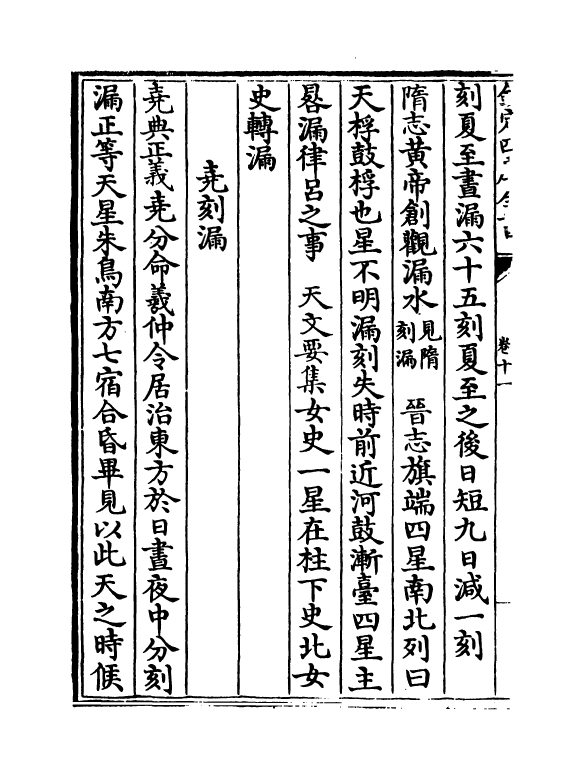 刻夏至晝漏六十五刻夏至之後日短九日减一刻
隋志黄帝創觀漏水見隋刻漏　晉志旗端四星南北列曰
天桴鼓桴也星不明漏刻失時前近河鼓漸臺四星主
晷漏律呂之事　天文要集女史一星在柱下史北女
史轉漏
堯刻漏
堯典正義堯分命羲仲令居治東方於日晝夜中分刻
漏正等天星朱鳥南方七宿合昏畢見以此天之時候
卷十一